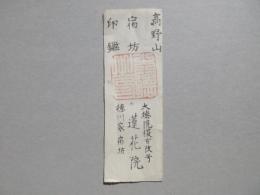 高野山
宿坊
印鑑
大徳院復古改号
蓮花院
徳川家宿坊